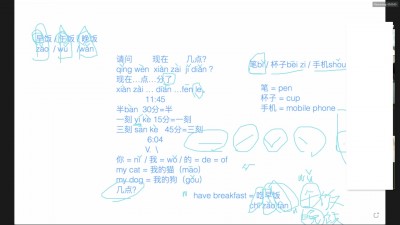 早饭 / 午饭 / 晚饭
zǎo / wǔ / wǎn
请问 现在 几点?
qǐng wèn xiàn zài jǐ diǎn ?
现在…点…分了
xiàn zài … diǎn …fēn le.
11:45
半bàn 30分=半
一刻 yí kè 15分=一刻
三刻 sān kè 45分=三刻
6:04
V. \
你 = nǐ / 我 = wǒ / 的 = de = of
my cat = 我的猫 (māo)
my dog = 我的狗 (gǒu)
几点?
笔bǐ / 杯子bēi zi / 手机shǒu
笔 = pen
杯子 = cup
手机 = mobile phone
have breakfast = 吃早饭
chī zǎo fàn
wǔ
午饭
晚饭